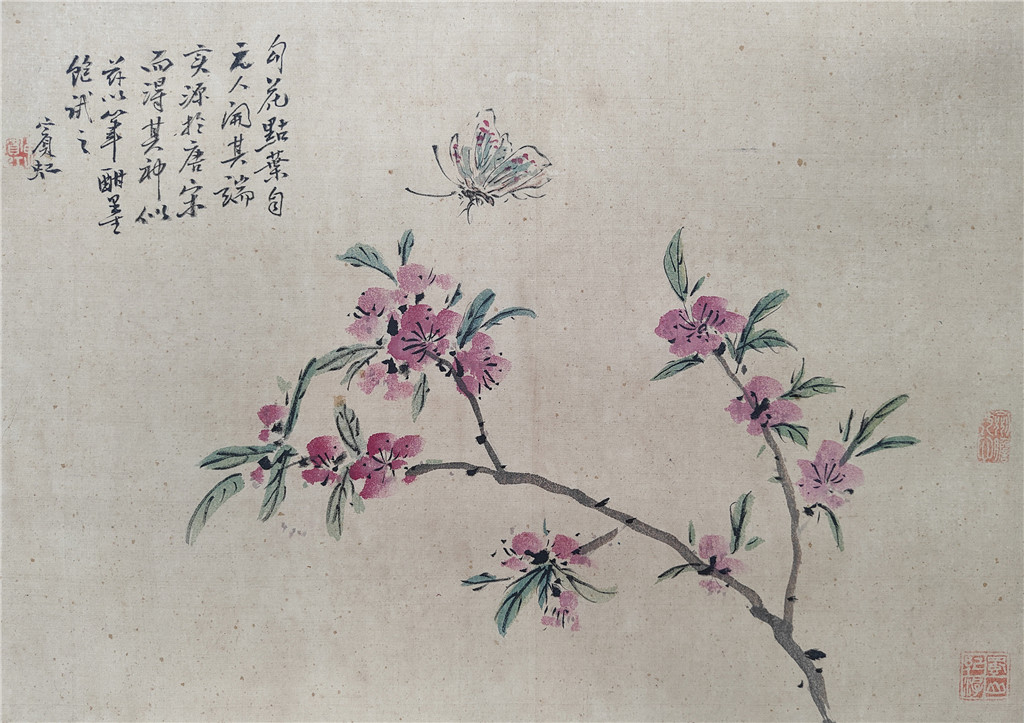 勾花點葉自
元人開其端
实源於唐宋
而淂其神似
茲以筆酣墨
飽試之
賓虹